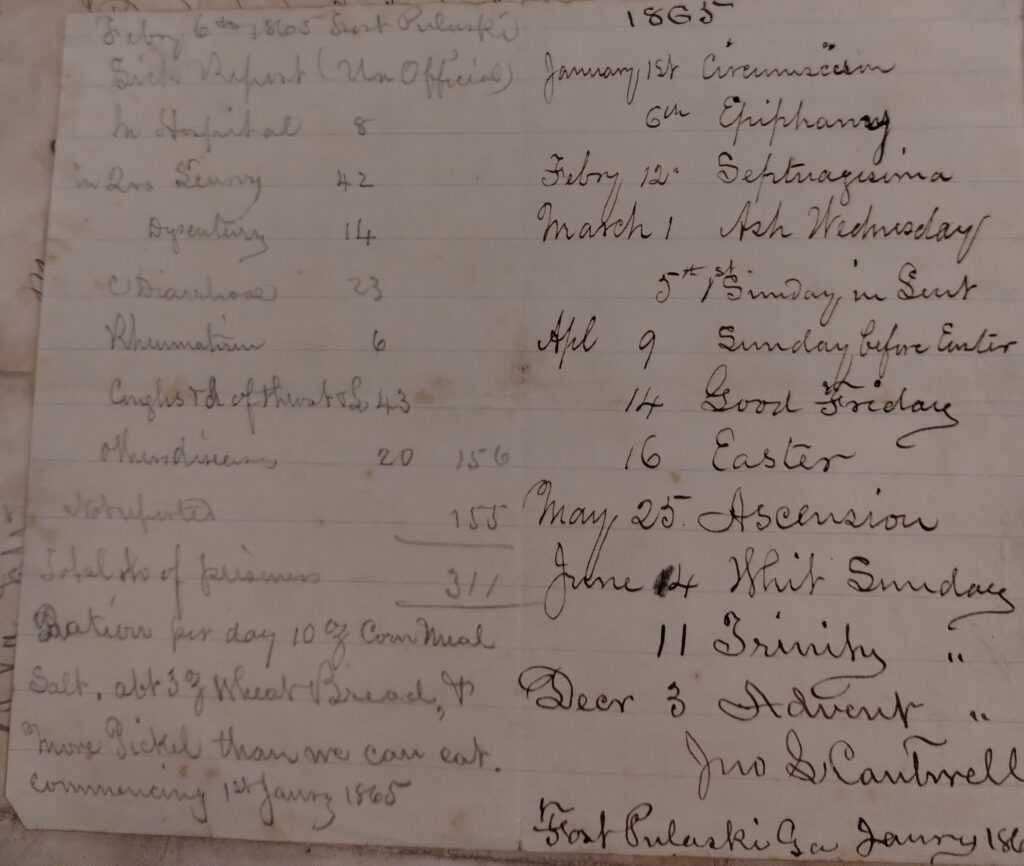 Febry 6th 1865 Fort Pulaski
Sick Report (Un Official)
In Hospital 8
in Qrs Scurvy 42
Dysentery 14
C Diarrhoea 23
Rheumatism 6
Coughs & d of throat & L 43
Other diseases 20 156
Not reported 155
Total No of prisoners 311
Ration per day 10 oz Corn Meal
Salt, abt 3 oz Wheat Bread, &
More Pickel than we can eat.
commencing 1st Janry 1865
1865
January 1st Circumcision
6th Epiphany
Febry 12 Septuagisima
March 1 Ash Wednesday
5th 1st Sunday in Lent
Apl 9 Sunday before Easter
14 Good Friday
16 Easter
May 25. Ascension
June 4 Whit Sunday
11 Trinity "
Decr 3 Advent "
Jno L Cantwell
Fort Pulaski Ga Janry 186